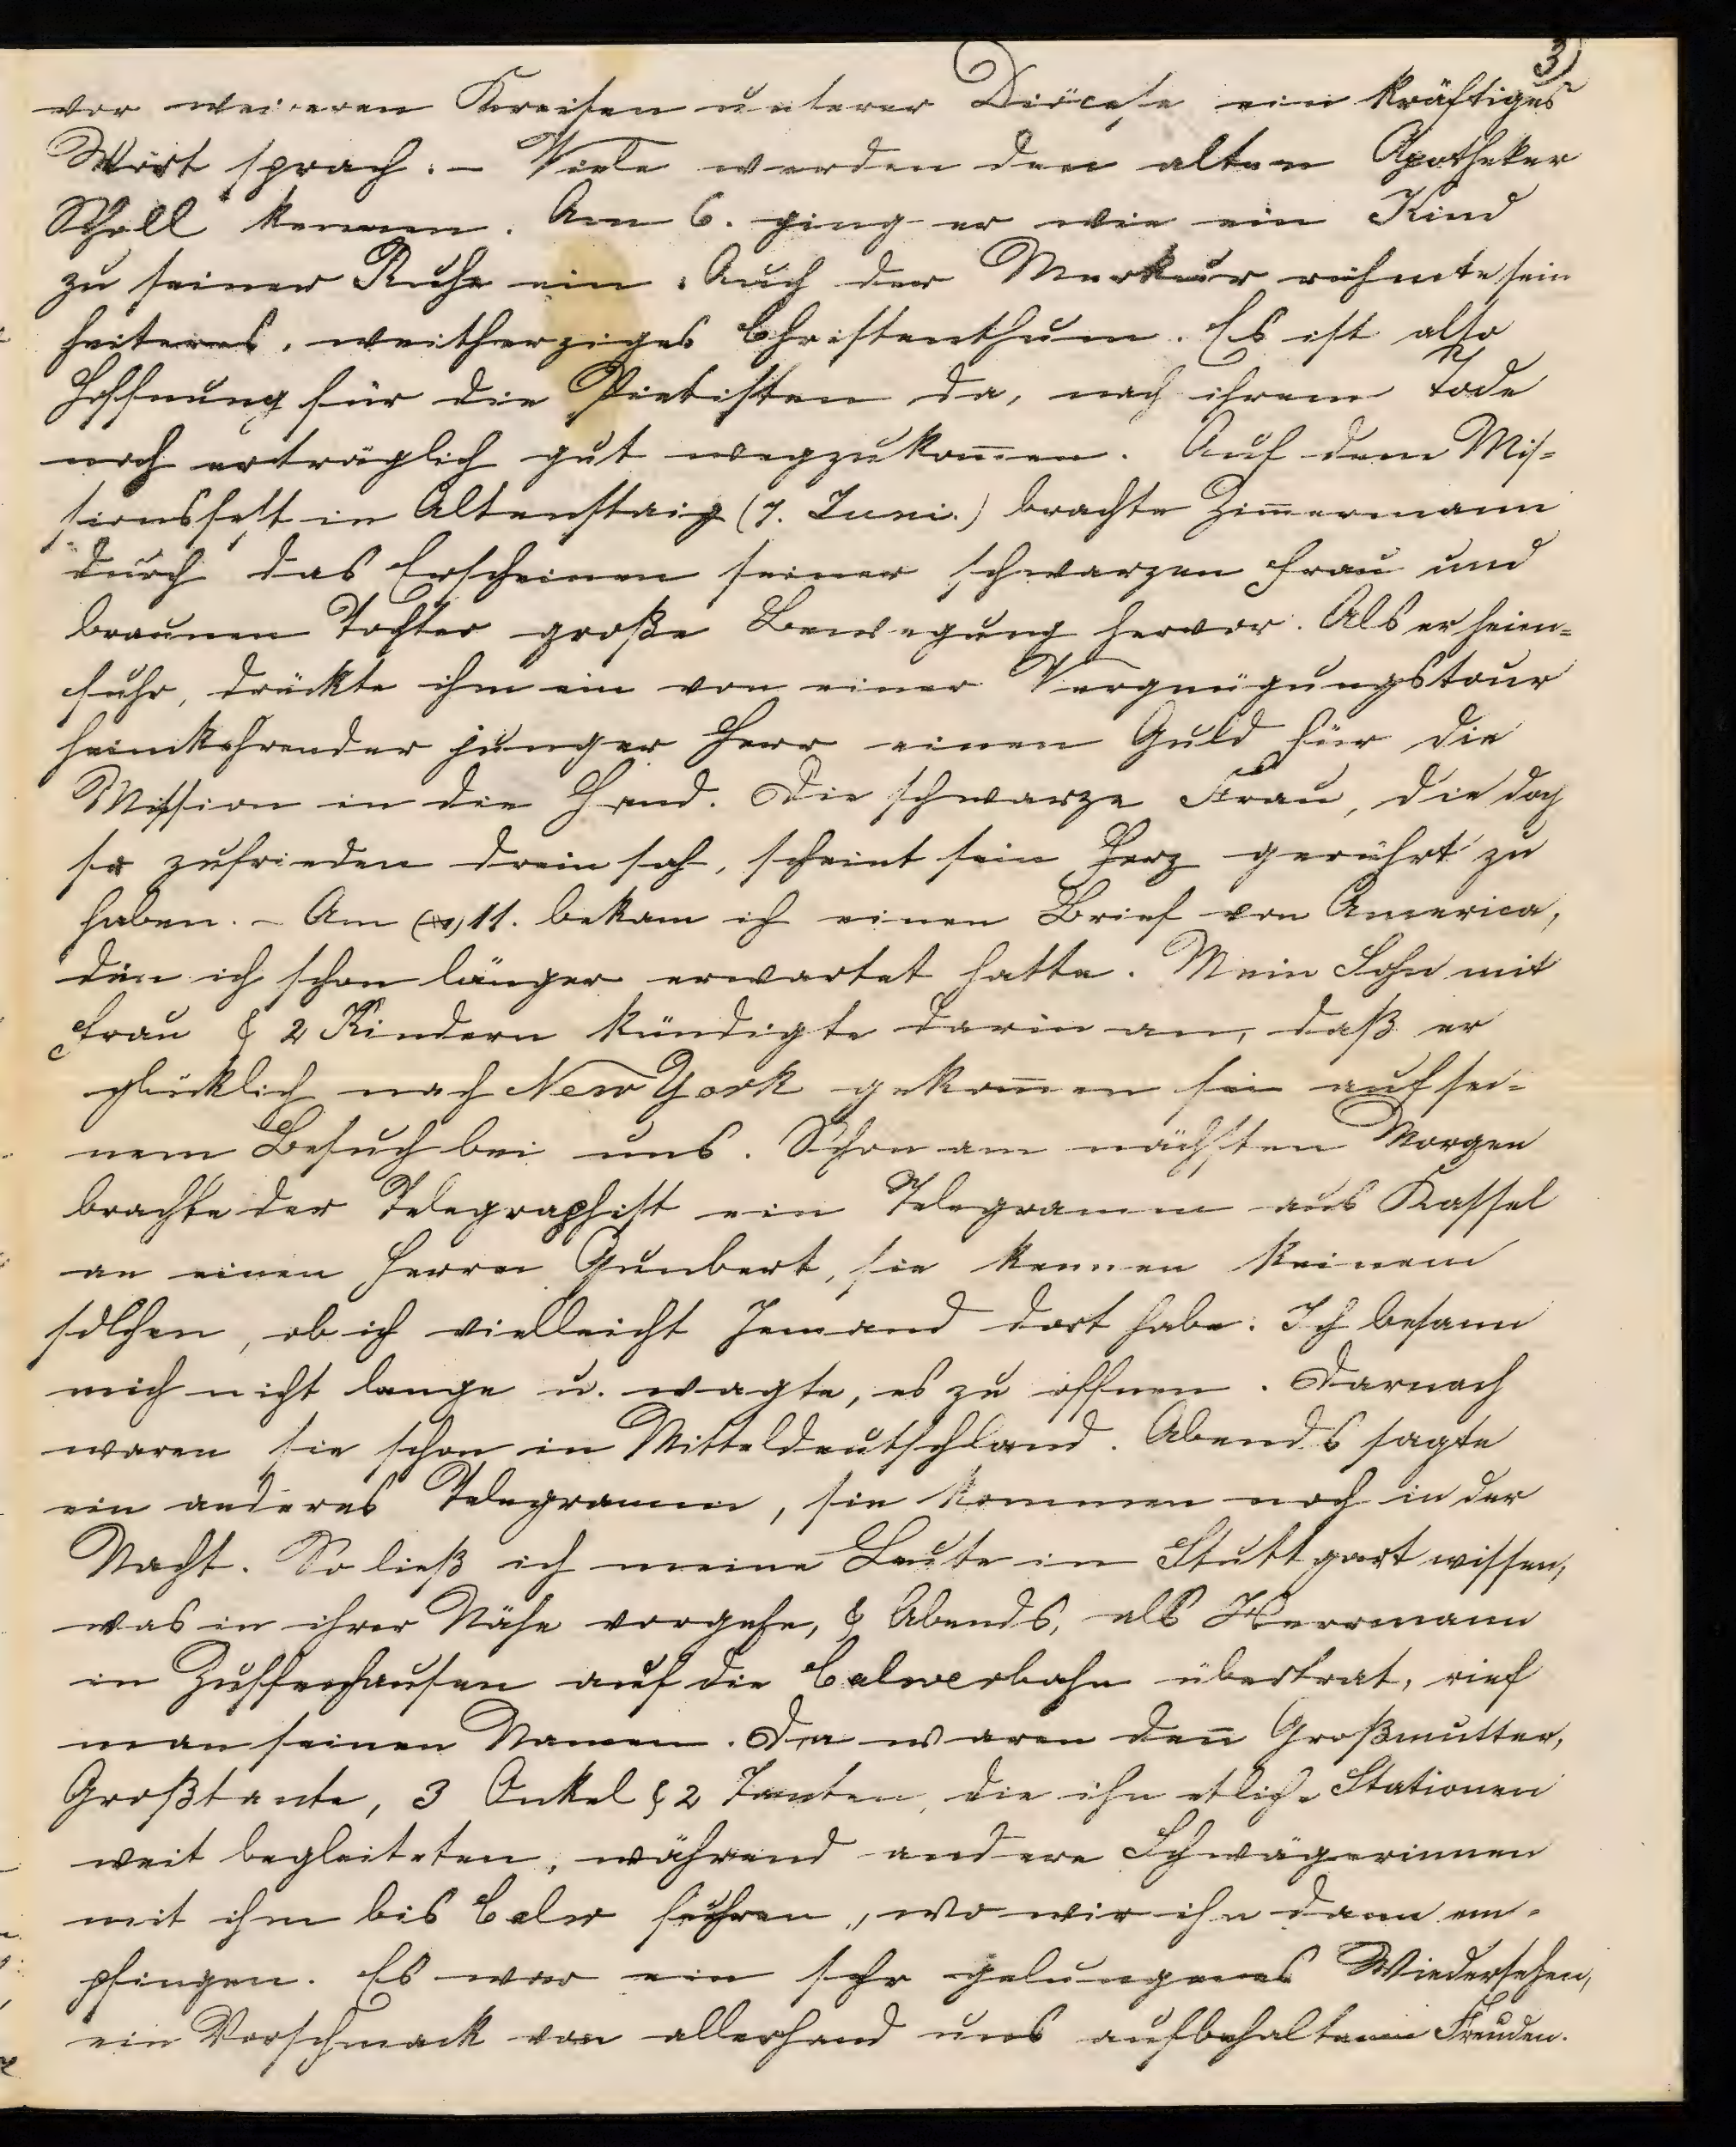 3)
vor weiteren Kreisen unserer Diöcese ein kräftiges
Wort sprach. – Viele werden den alten Apotheker
Scholl kennen. Am 6. ging er wie ein Kind
zu seiner Ruhe ein. Auch der Merkur rühmte sein
heiteres, weitherziges Christenthum. Es ist also
Hoffnung für die Pietisten da, nach ihrem Tode
noch erträglich gut wegzukom̄en. Auf dem Mis-
sionsfest in Altenstaig (7. Juni.) brachte Zim̄ermann
durch das Erscheinen seiner schwarzen Frau und
braunen Tochter große Bewegung hervor. Als er heim-
fuhr, drückte ihm ein von einer Vergnügungstour
heimkehrender junger Herr einen Guld für die
Mission in die Hand. Die schwarze Frau, die doch
so zufrieden drein sah, scheint sein Herz gerührt zu
haben. – Am 11. bekam ich einen Brief von America,
den ich schon länger erwartet hatte. Mein Sohn mit
Frau & 2 Kindern kündigte darin an, daß er
glücklich nach New York gekom̄en sei auf sei-
nem Besuch bei uns. Schon am nächsten Morgen
brachte der Telegraphist ein Telegramm aus Kassel
an einen Herrn Gunbert, sie kennen keinen
solchen, ob ich vielleicht Jemand dort habe. Ich besann
mich nicht lange u. wagte, es zu öffnen. Darnach
waren sie schon in Mitteldeutschland. Abends sagte
ein anderes Telegramm, sie kommen noch in der
Nacht. So ließ ich meine Leute in Stuttgart wissen,
was in ihrer Nähe vorgehe, & Abends, als Herrmann
in Zuffenhausen auf die Calwerbahn übertrat, rief
man seinen Namen. Da waren den̄ Großmutter,
Großtante, 3 Onkel & 2 Tanten, die ihn etliche Stationen
weit begleiteten, während andere Schwägerinnen
mit ihm bis Calw fuhren, wo wir ihn dann em-
pfingen. Es war ein sehr gelungenes Wiedersehen,
ein Vorschmack von allerhand uns aufbehaltenen Freuden.